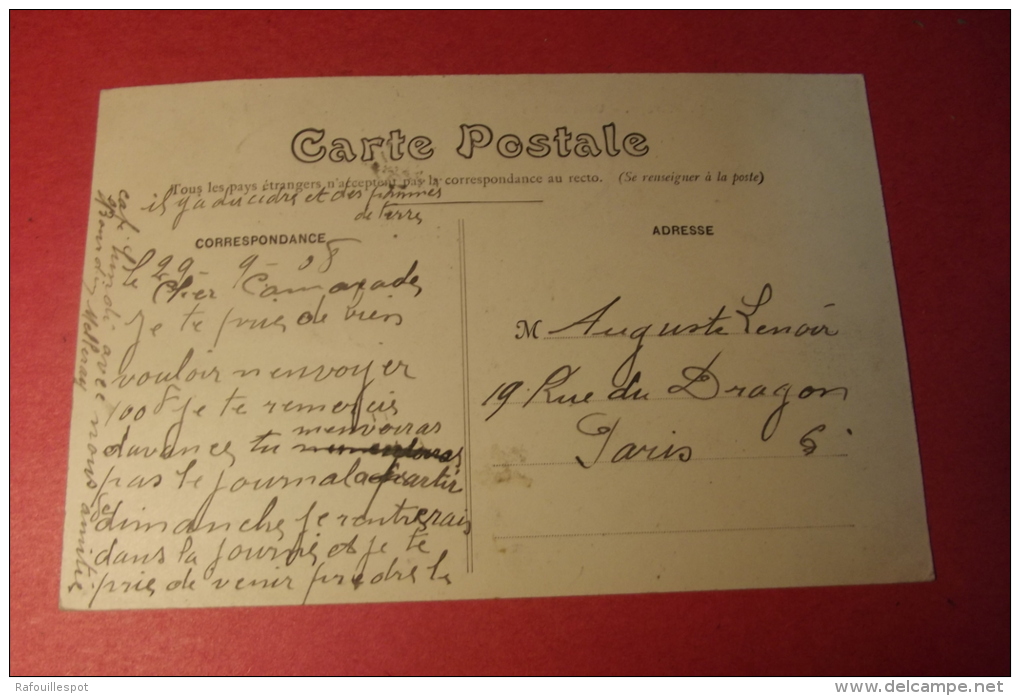 Carte Postale
Tous les pays étrangers n'acceptent pas la correspondance au recto. (Se renseigner à la poste)
il y a du cidre et des pommes
de terres
CORRESPONDANCE
le 29-9-08
Cher Camarade
je te prie de bien
vouloir n'envoyer
100 f je te remercis
davances tu
menvoiras
pas le journal apartir
de
dimanche je rentrerais
dans la journé et je te
prie de venir prendre le
café lundi avec nous amitié
ADRESSE
M Auguste Lenoir
19 Rue du Dragon
Paris 6e
Rafouillespot
delcampe.net